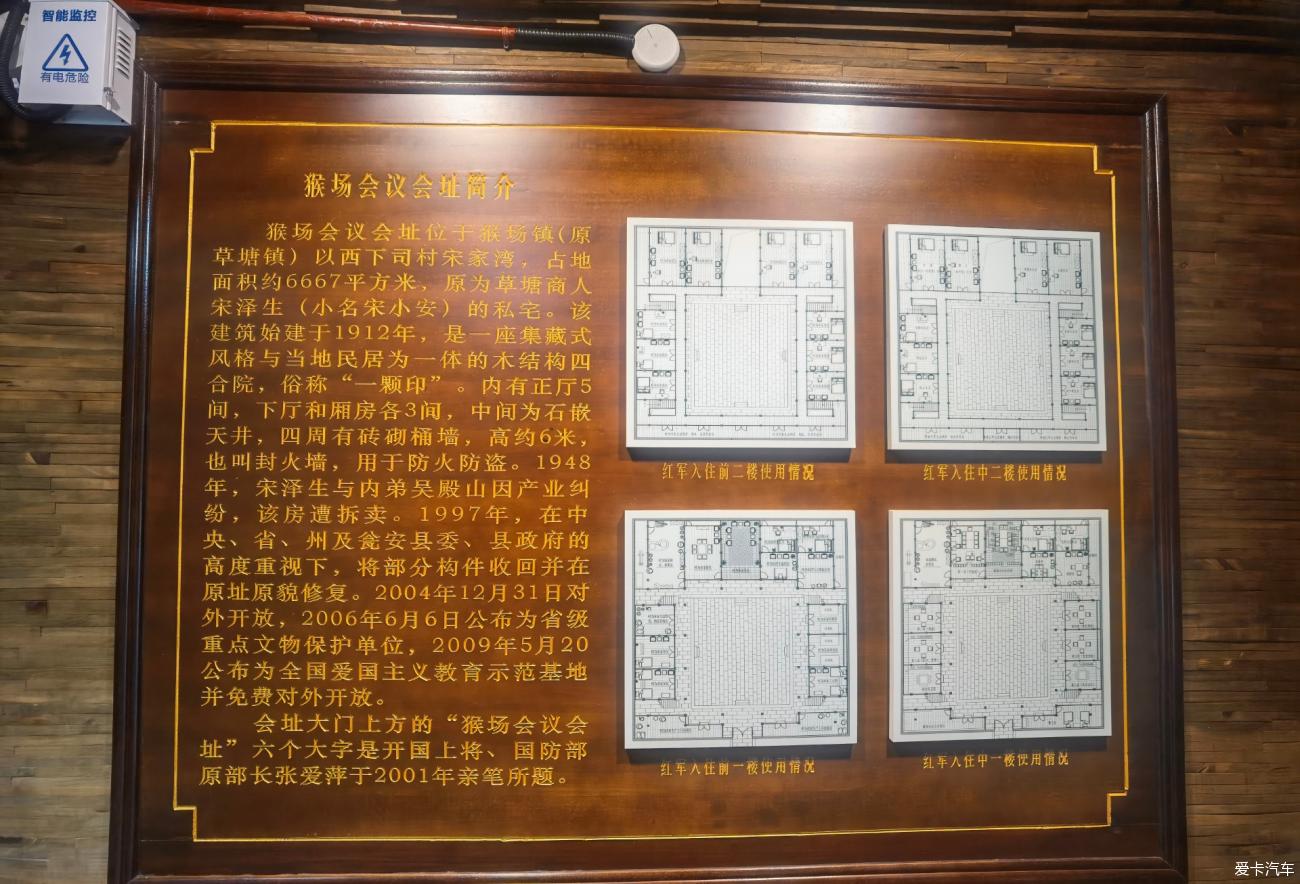 智能监控
有电危险
猴场会议会址简介
猴场会议会址位于猴场镇(原
草塘镇）以西下司村宋家湾，占地
面积约6667平方米，原为草塘商人
宋泽生（小名宋小安）的私宅。该
建筑始建于1912年，是一座集藏式
风格与当地民居为一体的木结构四
合院，俗称“一颗印”。内有正厅5
间，下厅和厢房各3间，中间为石嵌
天井，四周有砖砌桶墙，高约6米，
也叫封火墙，用于防火防盗。1948
年，宋泽生与内弟吴殿山因产业纠
纷，该房遭拆卖。1997年，在中
央、省、州及瓮安县委、县政府的
高度重视下，将部分构件收回并在
原址原貌修复。2004年12月31日对
外开放，2006年6月6日公布为省级
重点文物保护单位，2009年5月20
公布为全国爱国主义教育示范基地
并免费对外开放。
会址大门上方的“猴场会议会
址”六个大字是开国上将、国防部
原部长张爱萍于2001年亲笔所题。
红军入住前二楼使用情况
红军入住中二楼使用情况
红军入住前一楼使用情况
红军入住中一楼使用情况
爱卡汽车